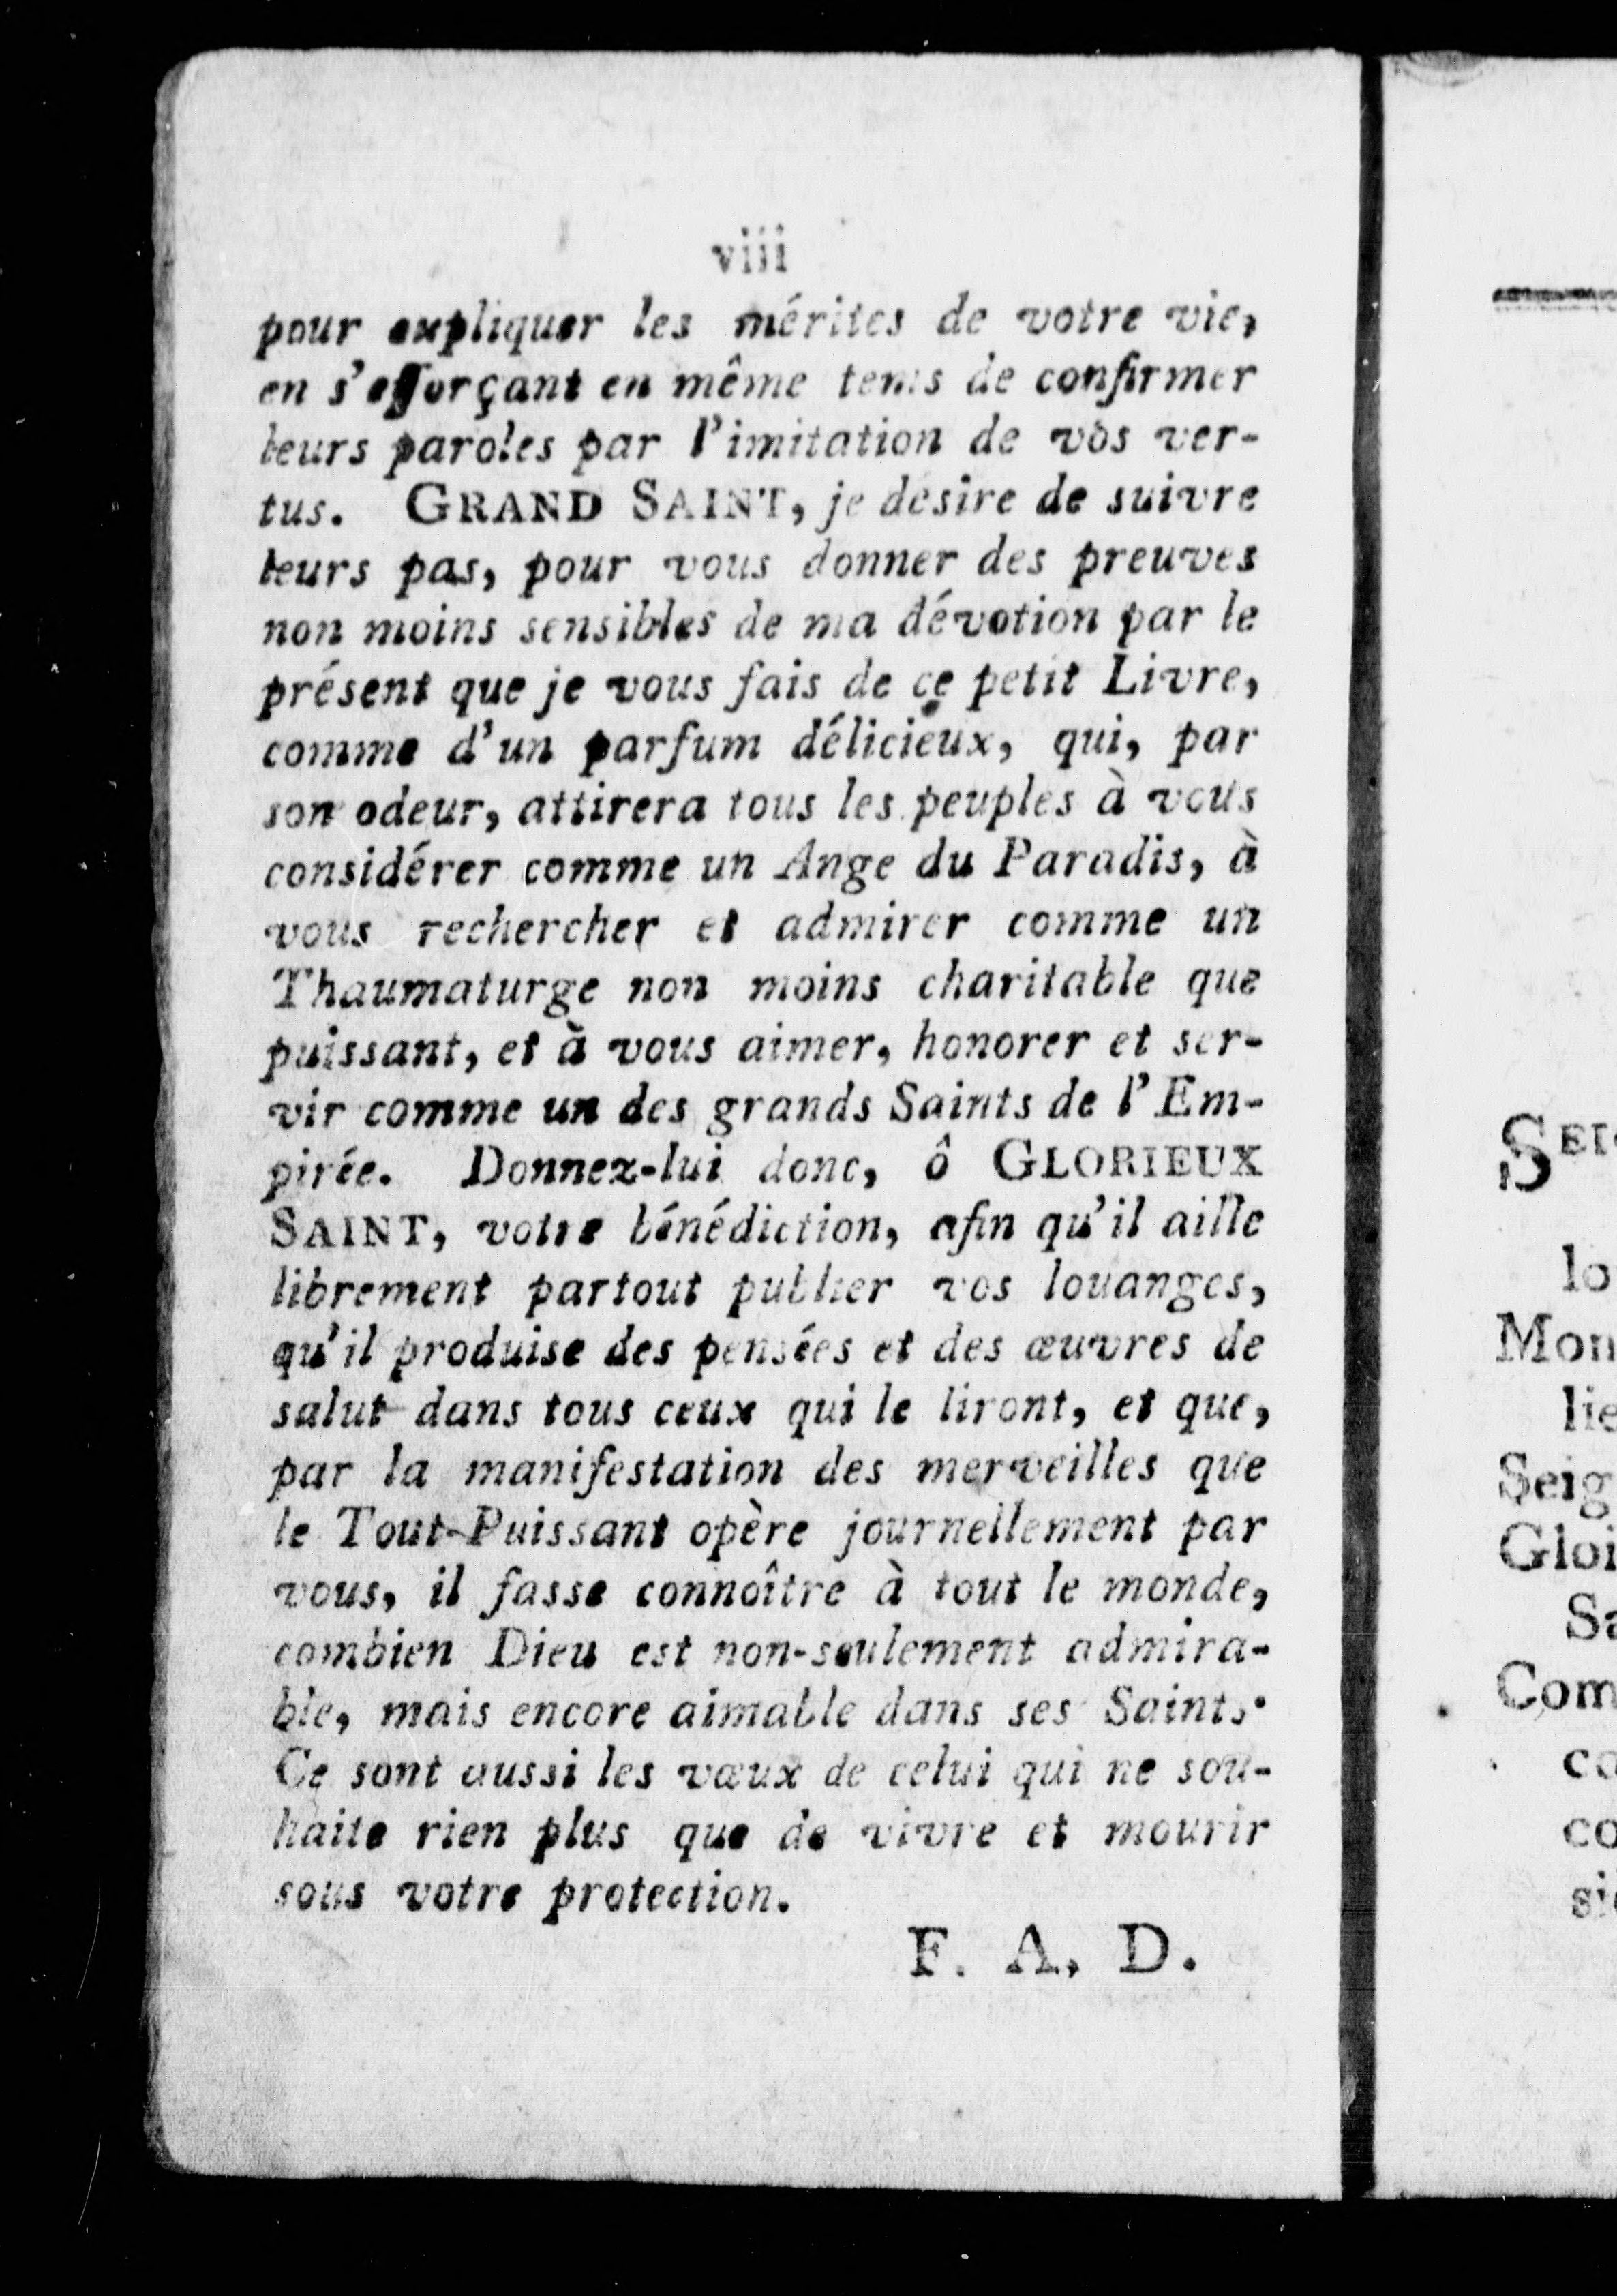 viii
pour expliquer les mérites de votre vie,
en s'efforçant en même tems de confirmer
leurs paroles par l'imitation de vos ver-
tus. GRAND SAINT, je désire de suivre
leurs pas, pour vous donner des preuves
non moins sensibles de ma dévotion par le
présent que je vous fais de ce petit Livre,
comme d'un parfum délicieux, qui, par
son odeur, attirera tous les peuples à vous
considérer comme un Ange du Paradis, à
vous rechercher et admirer comme un
Thaumaturge non moins charitable que
puissant, et à vous aimer, honorer et ser-
vir comme un des grands Saints de l'Em-
pirée. Donnez-lui donc, ô GLORIEUX
SAINT, votre bénédiction, afin qu'il aille
librement partout publier vos louanges,
qu'il produise des pensées et des œuvres de
salut dans tous ceux qui le liront, et que,
par la manifestation des merveilles que
le Tout-Puissant opère journellement par
vous, il fasse connoître à tout le monde,
combien Dieu est non-seulement admira-
ble, mais encore aimable dans ses Saints.
Ce sont aussi les vœux de celui qui ne sou-
haite rien plus que de vivre et mourir
sous votre protection.
F. A. D.
SEI
lo
Mon
lie
Seig
Gloi
Sa
Com
co
co
si